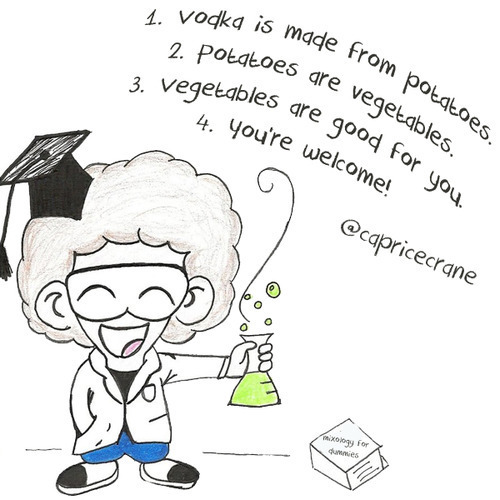 1. Vodka is made from potatoes.
2. Potatoes are vegetables.
3. Vegetables are good for you.
4. You're welcome!
@capricecrane
mixology for
dummies